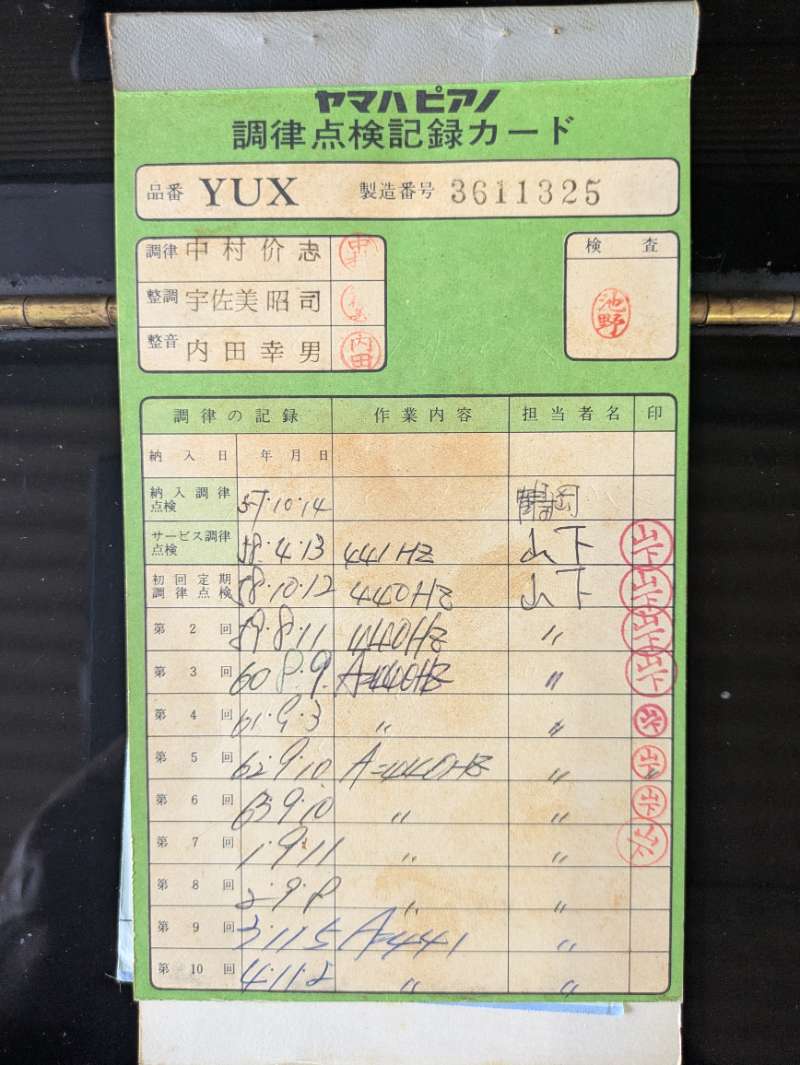 ヤマハピアノ
調律点検記録カード
品番 YUX 製造番号 3611325
調律 中村价志
検査
整調 宇佐美昭司
池野
整音 内田幸男 内田
調律の記録 作業内容 担当者名 印
納入日 年月日
納入調律点検 57.10.14 鶴岡
サービス調律点検 58.4.13 441HZ 山下 山下
初回定期調律点検 58.10.12 440HZ 山下 山下
第2回 59.8.11 440HZ 〃 山下
第3回 60 8.9. A=440HZ 〃 山下
第4回 61.9.3 〃 〃 山下
第5回 62.9.10 A=440HZ 〃 山下
第6回 63.9.10 〃 〃 山下
第7回 1.9.11 〃 〃 山下
第8回 2.9.8 〃 〃
第9回 3.11.5 A=441 〃
第10回 4.11.2 〃 〃